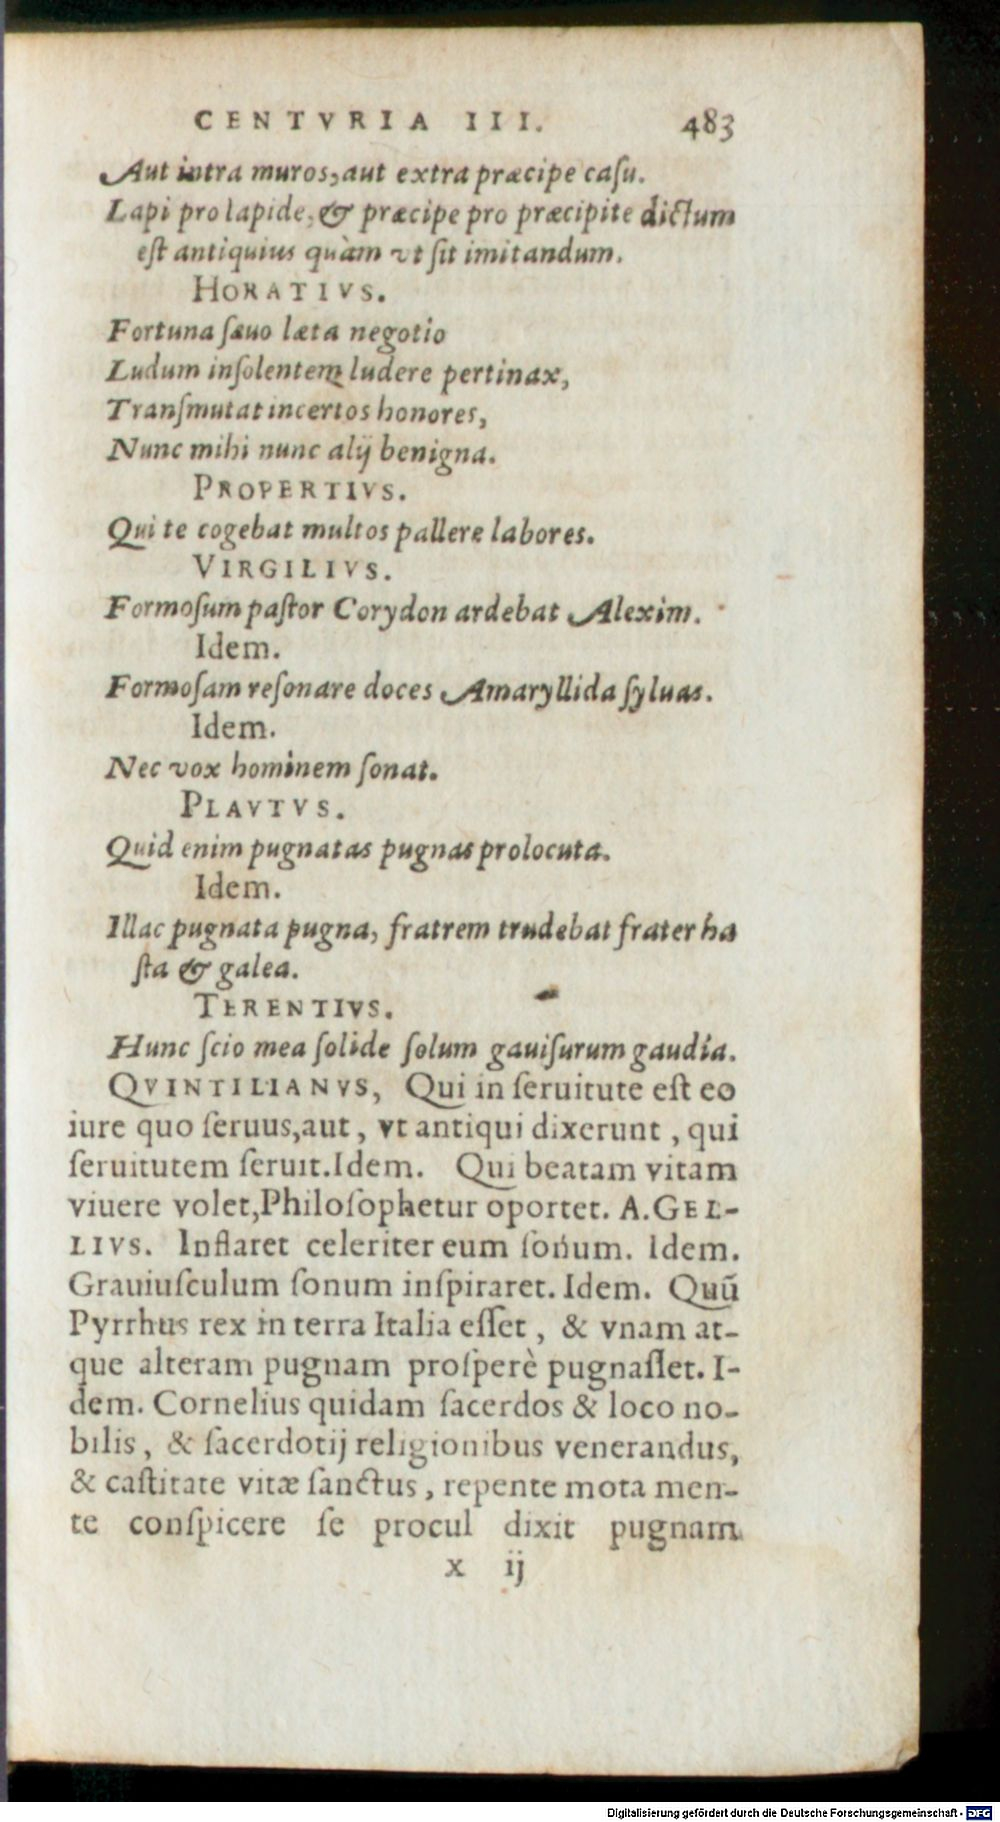 CENTVRIA III. 483
Aut intra muros, aut extra præcipe caſu.
Lapi pro lapide, & præcipe pro præcipite dictum
eſt antiquius quàm vt ſit imitandum.
HORATIVS.
Fortuna ſæuo læta negotio
Ludum inſolentem ludere pertinax,
Tranſmutat incertos honores,
Nunc mihi nunc alij benigna.
PROPERTIVS.
Qui te cogebat multos pallere labores.
VIRGILIVS.
Formoſum paſtor Corydon ardebat Alexim.
Idem.
Formoſam reſonare doces Amaryllida ſyluas.
Idem.
Nec vox hominem ſonat.
PLAVTVS.
Quid enim pugnatas pugnas prolocuta.
Idem.
Illac pugnata pugna, fratrem trudebat frater ha
ſta & galea.
TERENTIVS.
Hunc ſcio mea ſolide ſolum gauiſurum gaudia.
QVINTILIANVS, Qui in ſeruitute eſt eo
iure quo ſeruus, aut, vt antiqui dixerunt, qui
ſeruitutem ſeruit. Idem. Qui beatam vitam
viuere volet, Philoſophetur oportet. A. GEL-
LIVS. Inflaret celeriter eum ſonum. Idem.
Grauiuſculum ſonum inſpiraret. Idem. Quũ
Pyrrhus rex in terra Italia eſſet, & vnam at-
que alteram pugnam proſperè pugnaſſet. I-
dem. Cornelius quidam ſacerdos & loco no-
bilis, & ſacerdotij religionibus venerandus,
& caſtitate vitæ ſanctus, repente mota men-
te conſpicere ſe procul dixit pugnam
x ij
Digitalisierung gefördert durch die Deutsche Forschungsgemeinschaft - DFG